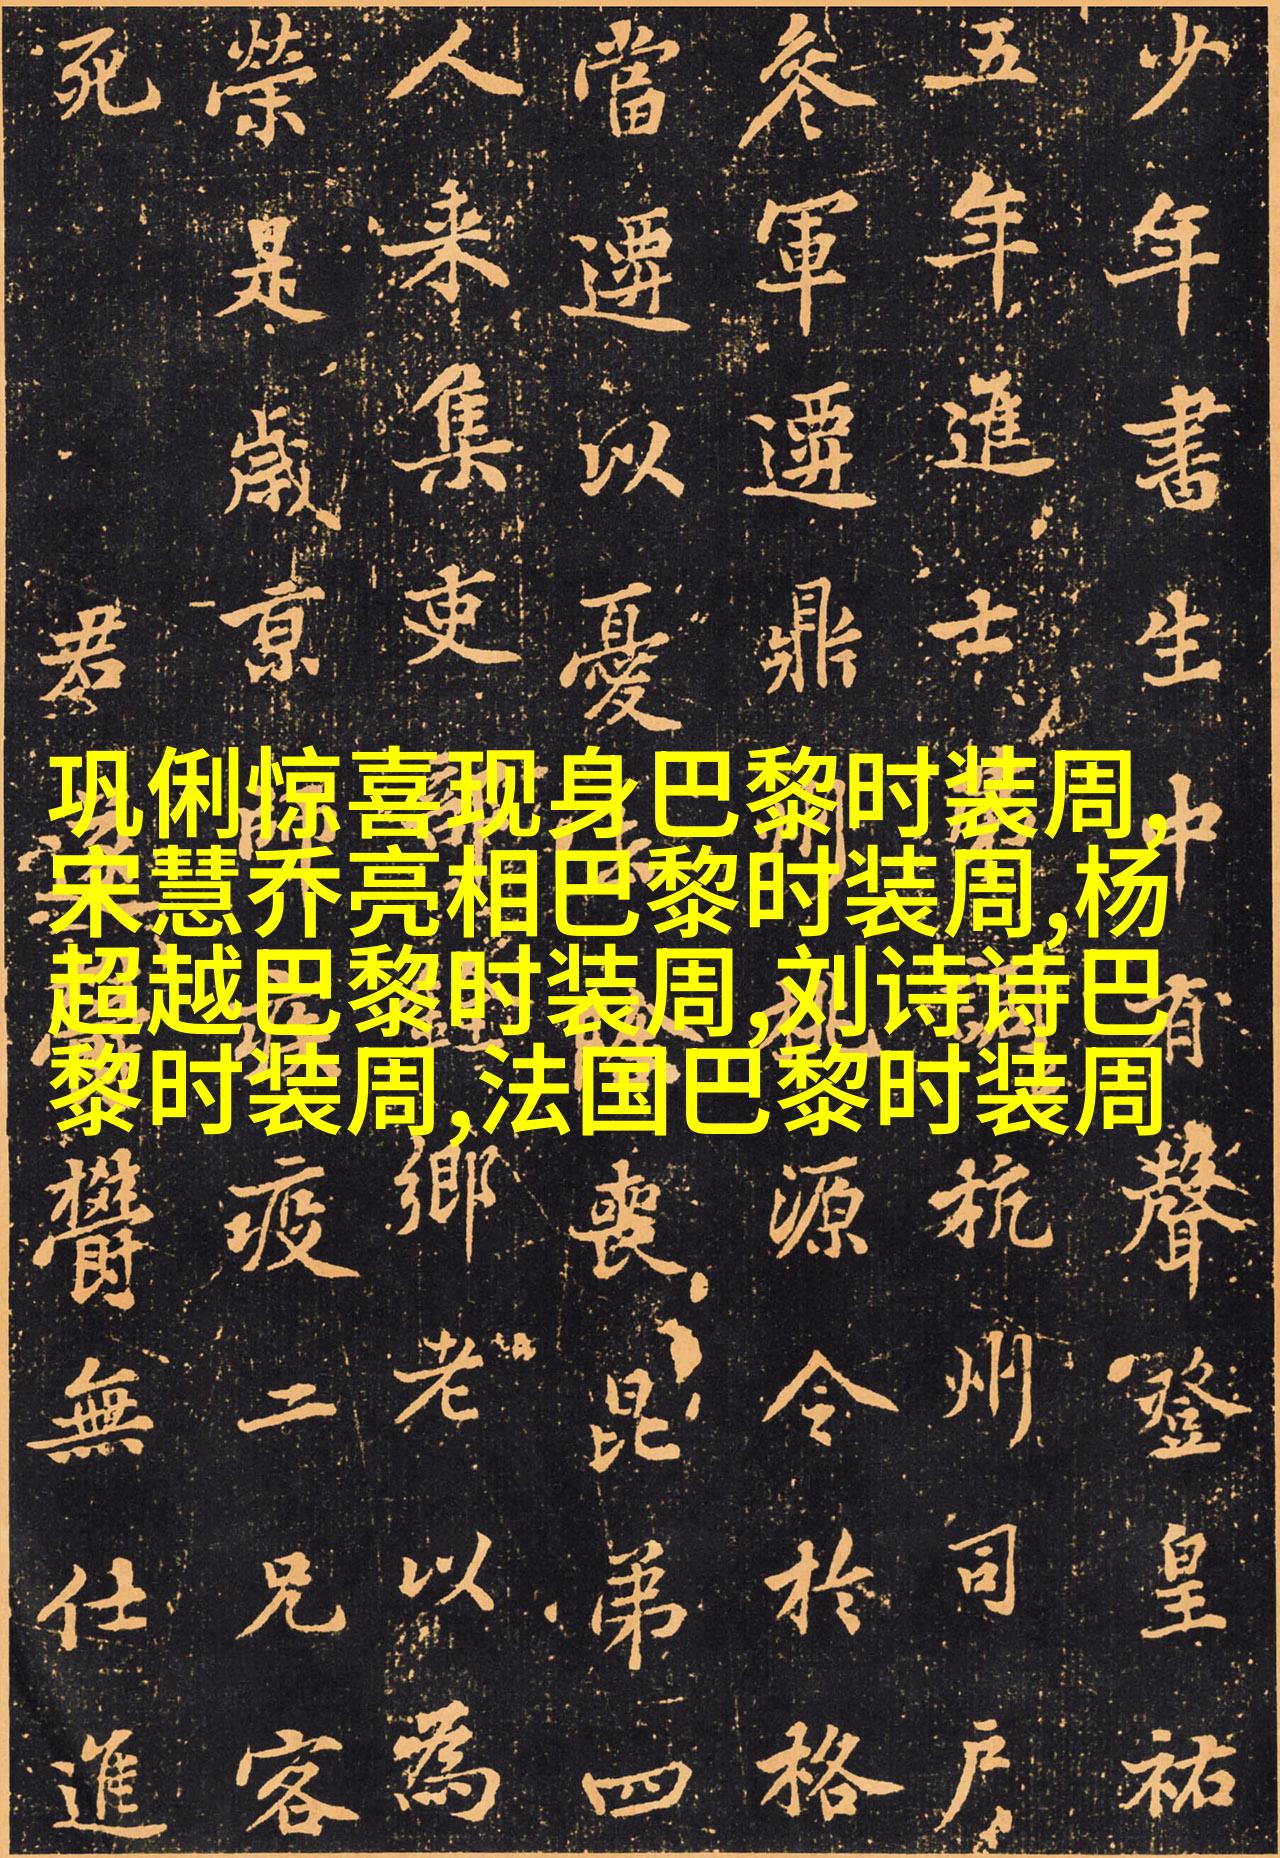 少年書生中有聲登皇祐
五年進士杭州司戶
參軍遷鼎源令於格
當遷以憂喪昆弟四
人来集吏鄉老以為
榮是歲京疫二兄客
死君鬱無仕進
巩俐惊喜现身巴黎时装周,
宋慧乔亮相巴黎时装周,杨
超越巴黎时装周,刘诗诗巴
黎时装周,法国巴黎时装周